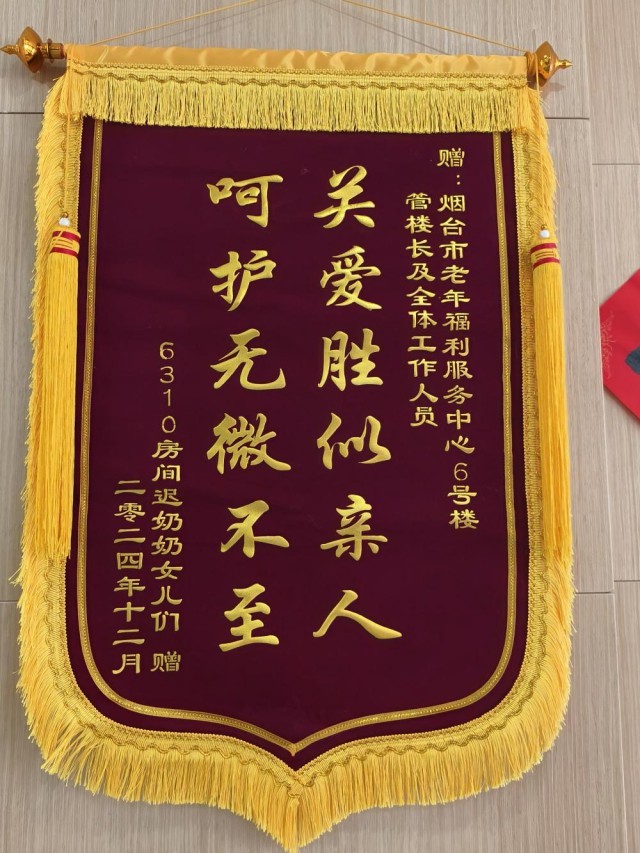 赠：烟台市老年福利服务中心6号楼
管楼长及全体工作人员
关爱胜似亲人
呵护无微不至
6310房间迟奶奶女儿们 赠
二零二四年十二月